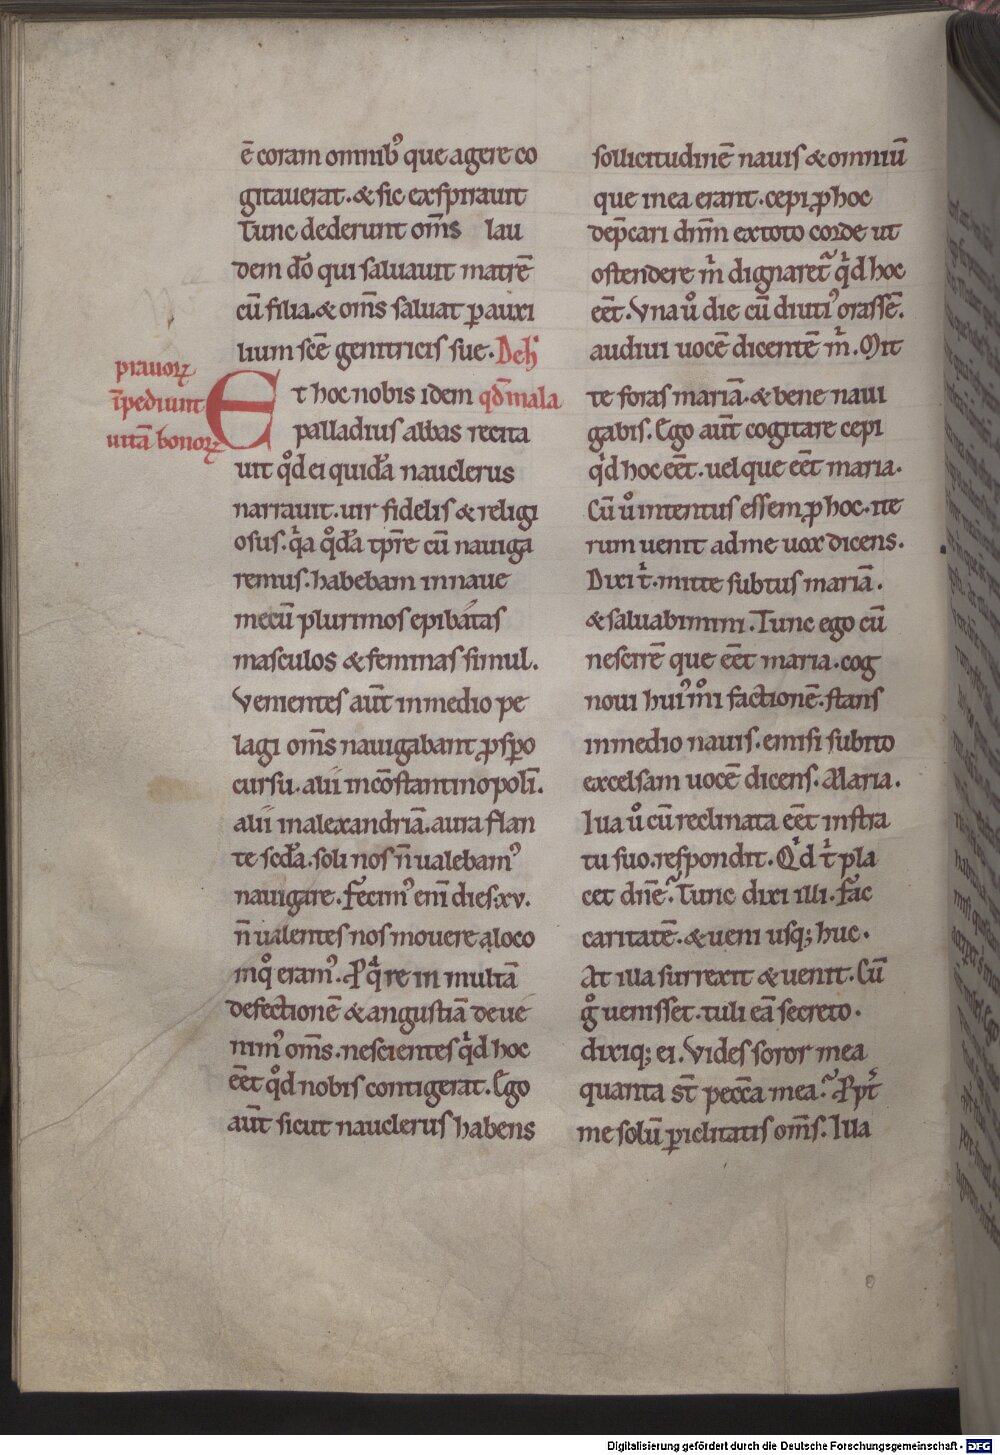 ē coram omnib᾽ que agere co
gitauerat·&sic exspirauit
Tunc dederunt om̄s lau
dem dō qui saluauit matrē
cū filia·&om̄s saluat ꝑauxi
lium scē genitricis sue· De h᾽
prauoꝝ
īpediunt
uitā bonoꝝ
Et hoc nobis idem qd̄ mala
palladius abbas recita
uit qͦd ei quidā nauclerus
narrauit·uir fidelis &religi
osus·qͥa qͦdā tp̄re cū nauiga
remus·habebam innaue
mecū plurimos epibatas
masculos &feminas simul·
Venientes aūt inmedio pe
lagi om̄s nauigabant ꝓspo
cursu·alii incōstantinopolī·
alii inalexandriā·aura flan
te scd̄a·soli nos n̄ ualebam᾽
nauigare·Fecim᾽ enī dies·xv·
n̄ ualentes nos mouere aloco
inqͦ eram᾽·Pqͣre in multā
defectionē &angustiā deue
nim᾽ om̄s·nescientes qͥd hoc
eēt qͦd nobis contigerat·Ego
aūt sicut nauclerus habens
sollicitudinē nauis &omniū
que inea erant·cepi ꝓhoc
dep̄cari dn̄m extoto corde ut
ostendere m̄ dignaret᾽ qͥd hoc
eēt·Vna uͦ die cū diuti᾽ orassē·
audiui uocē dicentē m̄·Mit
te foras mariā·&bene naui
gabis·Ego aūt cogitare cepi
qͥd hoc eēt·uelque eēt maria·
Cū uͦ intentus essem ꝓhoc·ite
rum uenit adme uox dicens·
Dixi tͥ·mitte subtus mariā·
&saluabimini·Tunc ego cū
nescirē que eēt maria·cog
noui hui᾽ mͦi factionē·stans
inmedio nauis·emisi subito
excelsam uocē dicens·Maria·
Illa uͦ cū reclinata eēt instra
tu suo·respondit·Qͥd tͥ pla
cet dn̄e?Tunc dixi illi·Fac
caritatē·&ueni usq; huc·
At illa surrexit &uenit·Cū
gͦ uenisset·tuli eā secreto·
dixiq; ei·Vides soror mea
quanta st̄ pecc̄a mea?Ppt᾽
me solū ꝑiclitatis om̄s·Illa
Digitalisierung gefördert durch die Deutsche Forschungsgemeinschaft - DFG